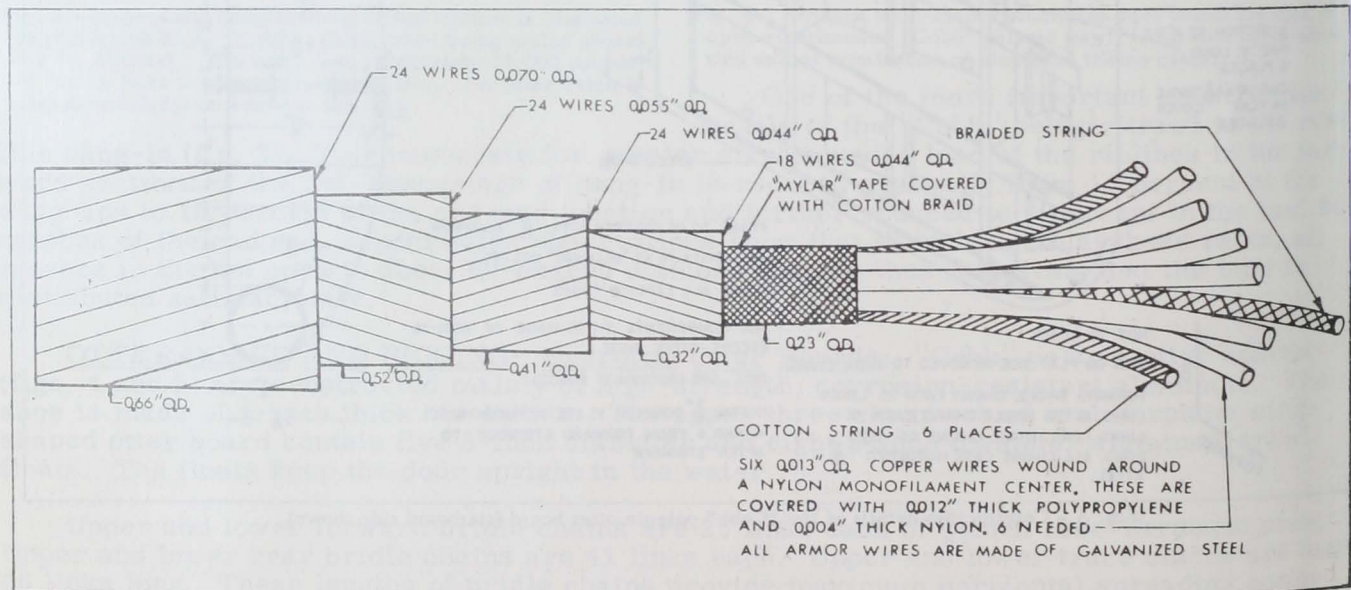 24 WIRES 0.070" O.D.
24 WIRES 0.055" O.D.
24 WIRES 0.044" O.D.
BRAIDED STRING
18 WIRES 0.044" O.D.
"MYLAR" TAPE COVERED
WITH COTTON BRAID
0.66" O.D.
0.52" O.D.
0.41" O.D.
0.32" O.D.
0.23" O.D.
COTTON STRING - 6 PLACES
SIX 0.013" O.D. COPPER WIRES WOUND AROUND
A NYLON MONOFILAMENT CENTER. THESE ARE
COVERED WITH 0.012" THICK POLYPROPYLENE
AND 0.004" THICK NYLON, 8 NEEDED
ALL ARMOR WIRES ARE MADE OF GALVANIZED STEEL